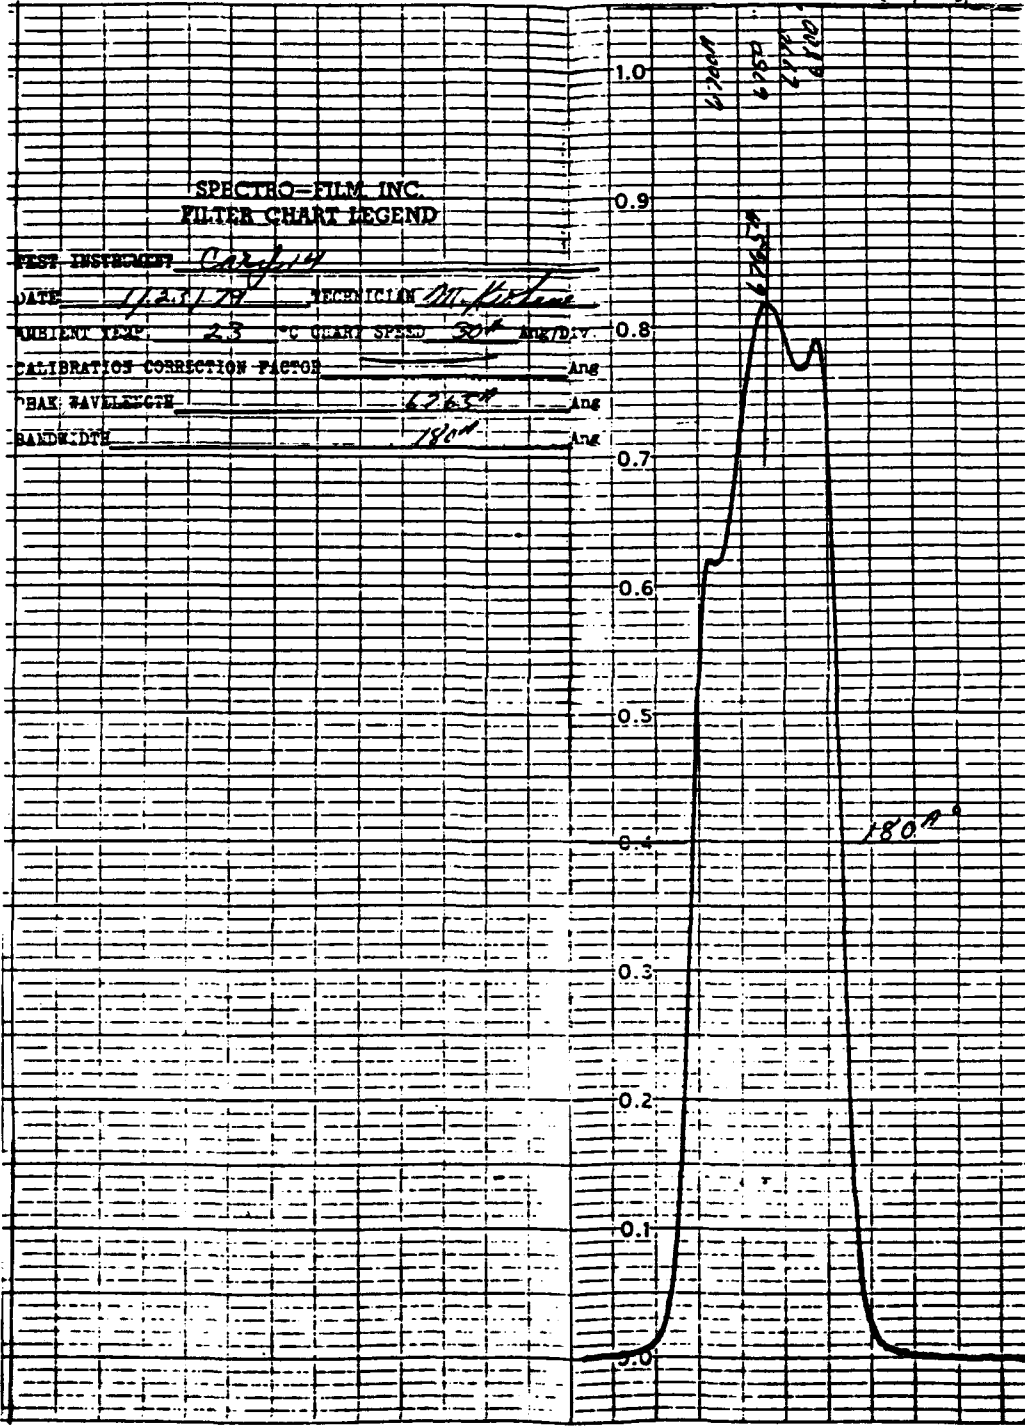 SPECTRO-FILM, INC.
FILTER CHART LEGEND
TEST INSTRUMENT Cary 14
DATE TECHNICIAN M.
AMBIENT TEMP. 23 °C CHART SPEED 30A Ang/DIV.
CALIBRATION CORRECTION FACTOR Ang
PEAK WAVELENGTH 6765A Ang
BANDWIDTH 180A Ang
6700A
6750
6800
1.0
0.9
6765A
0.8
0.7
0.6
0.5
0.4
180A°
0.3
0.2
0.1
0.0